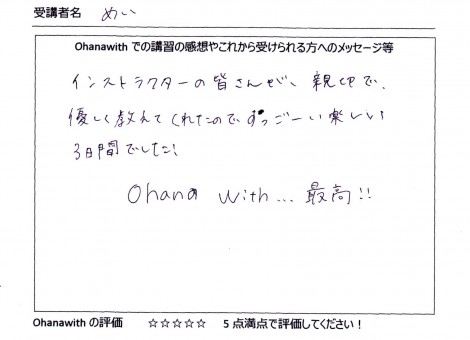 受講者名 めい
Ohanawith での講習の感想やこれから受けられる方へのメッセージ等
インストラクターの皆さんが、親切で、
優しく教えてくれたのですっごーい楽しい
3日間でした!
Ohana with... 最高!!
Ohanawith の評価 ☆☆☆☆☆ 5点満点で評価してください！